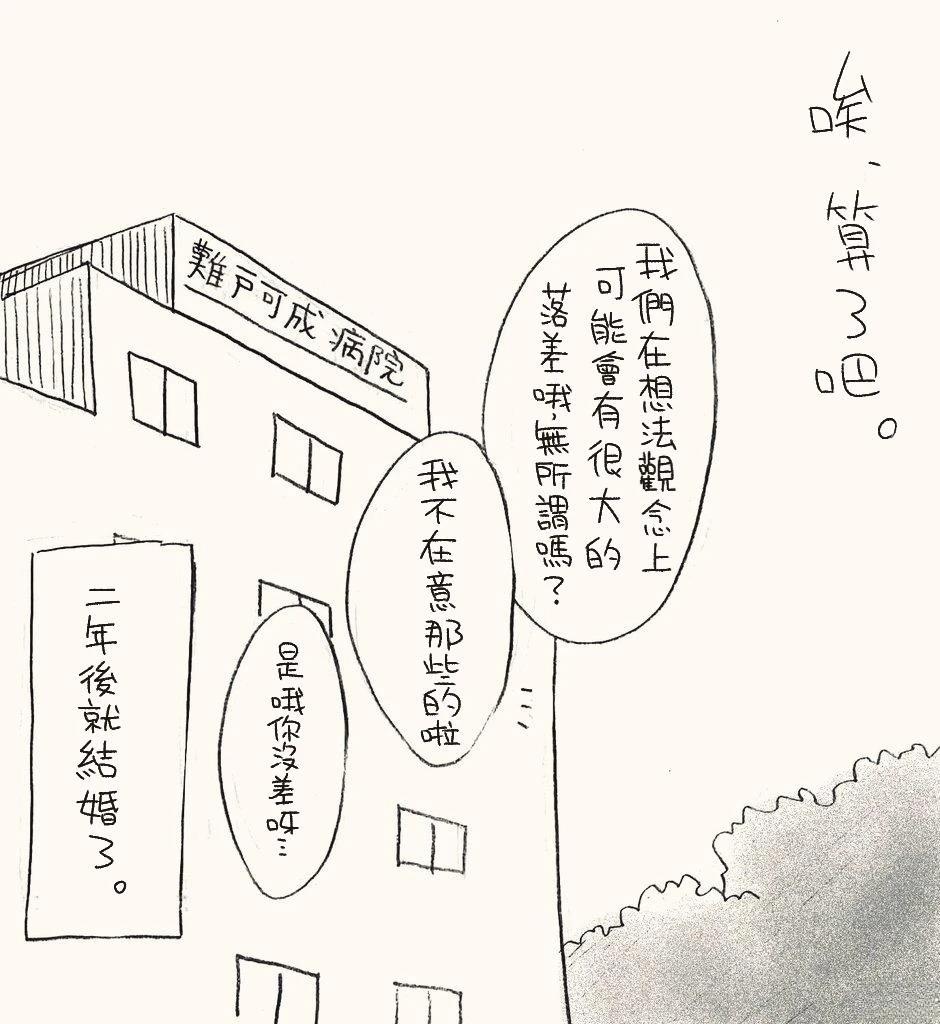 唉、算了吧。
我們在想法觀念上
可能會有很大的
落差哦,無所謂嗎？
我不在意那些的啦
是哦你沒差呀…
難戸可成病院
二年後就結婚了。